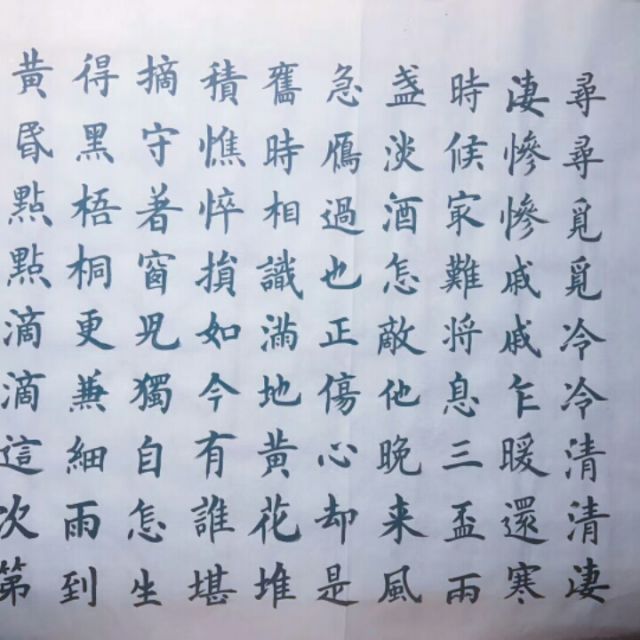 尋尋覓覓冷冷清清淒
淒慘慘戚戚乍暖還寒
時候家難將息三盃兩
盞淡酒怎敵他晚来風
急鴈過也正傷心却是
舊時相識滿地黃花堆
積憔悴損如今有誰堪
摘守著窗兒獨自怎生
得黑梧桐更兼細雨到
黃昏點點滴滴這次第